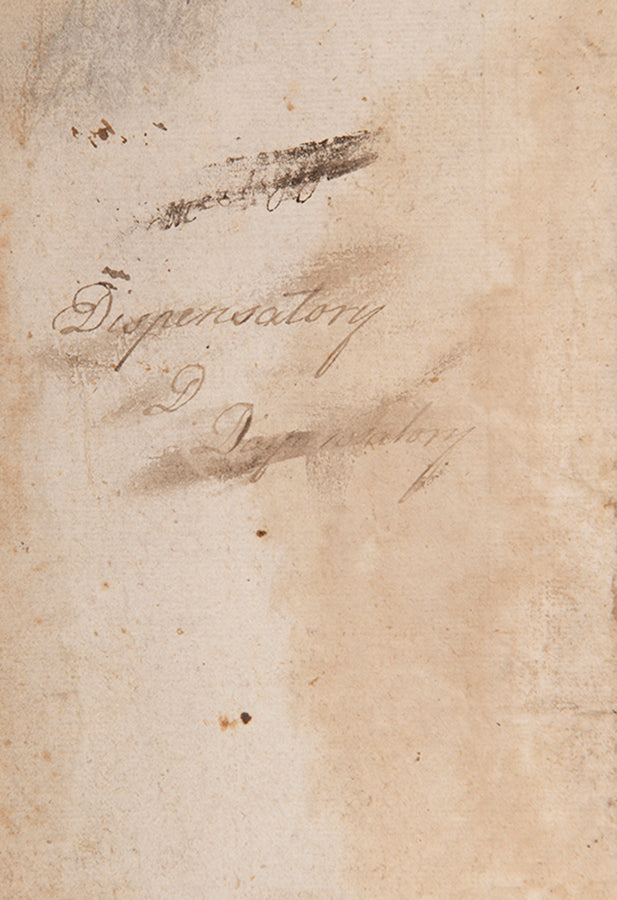 Dispensatory
D
Dispensatory